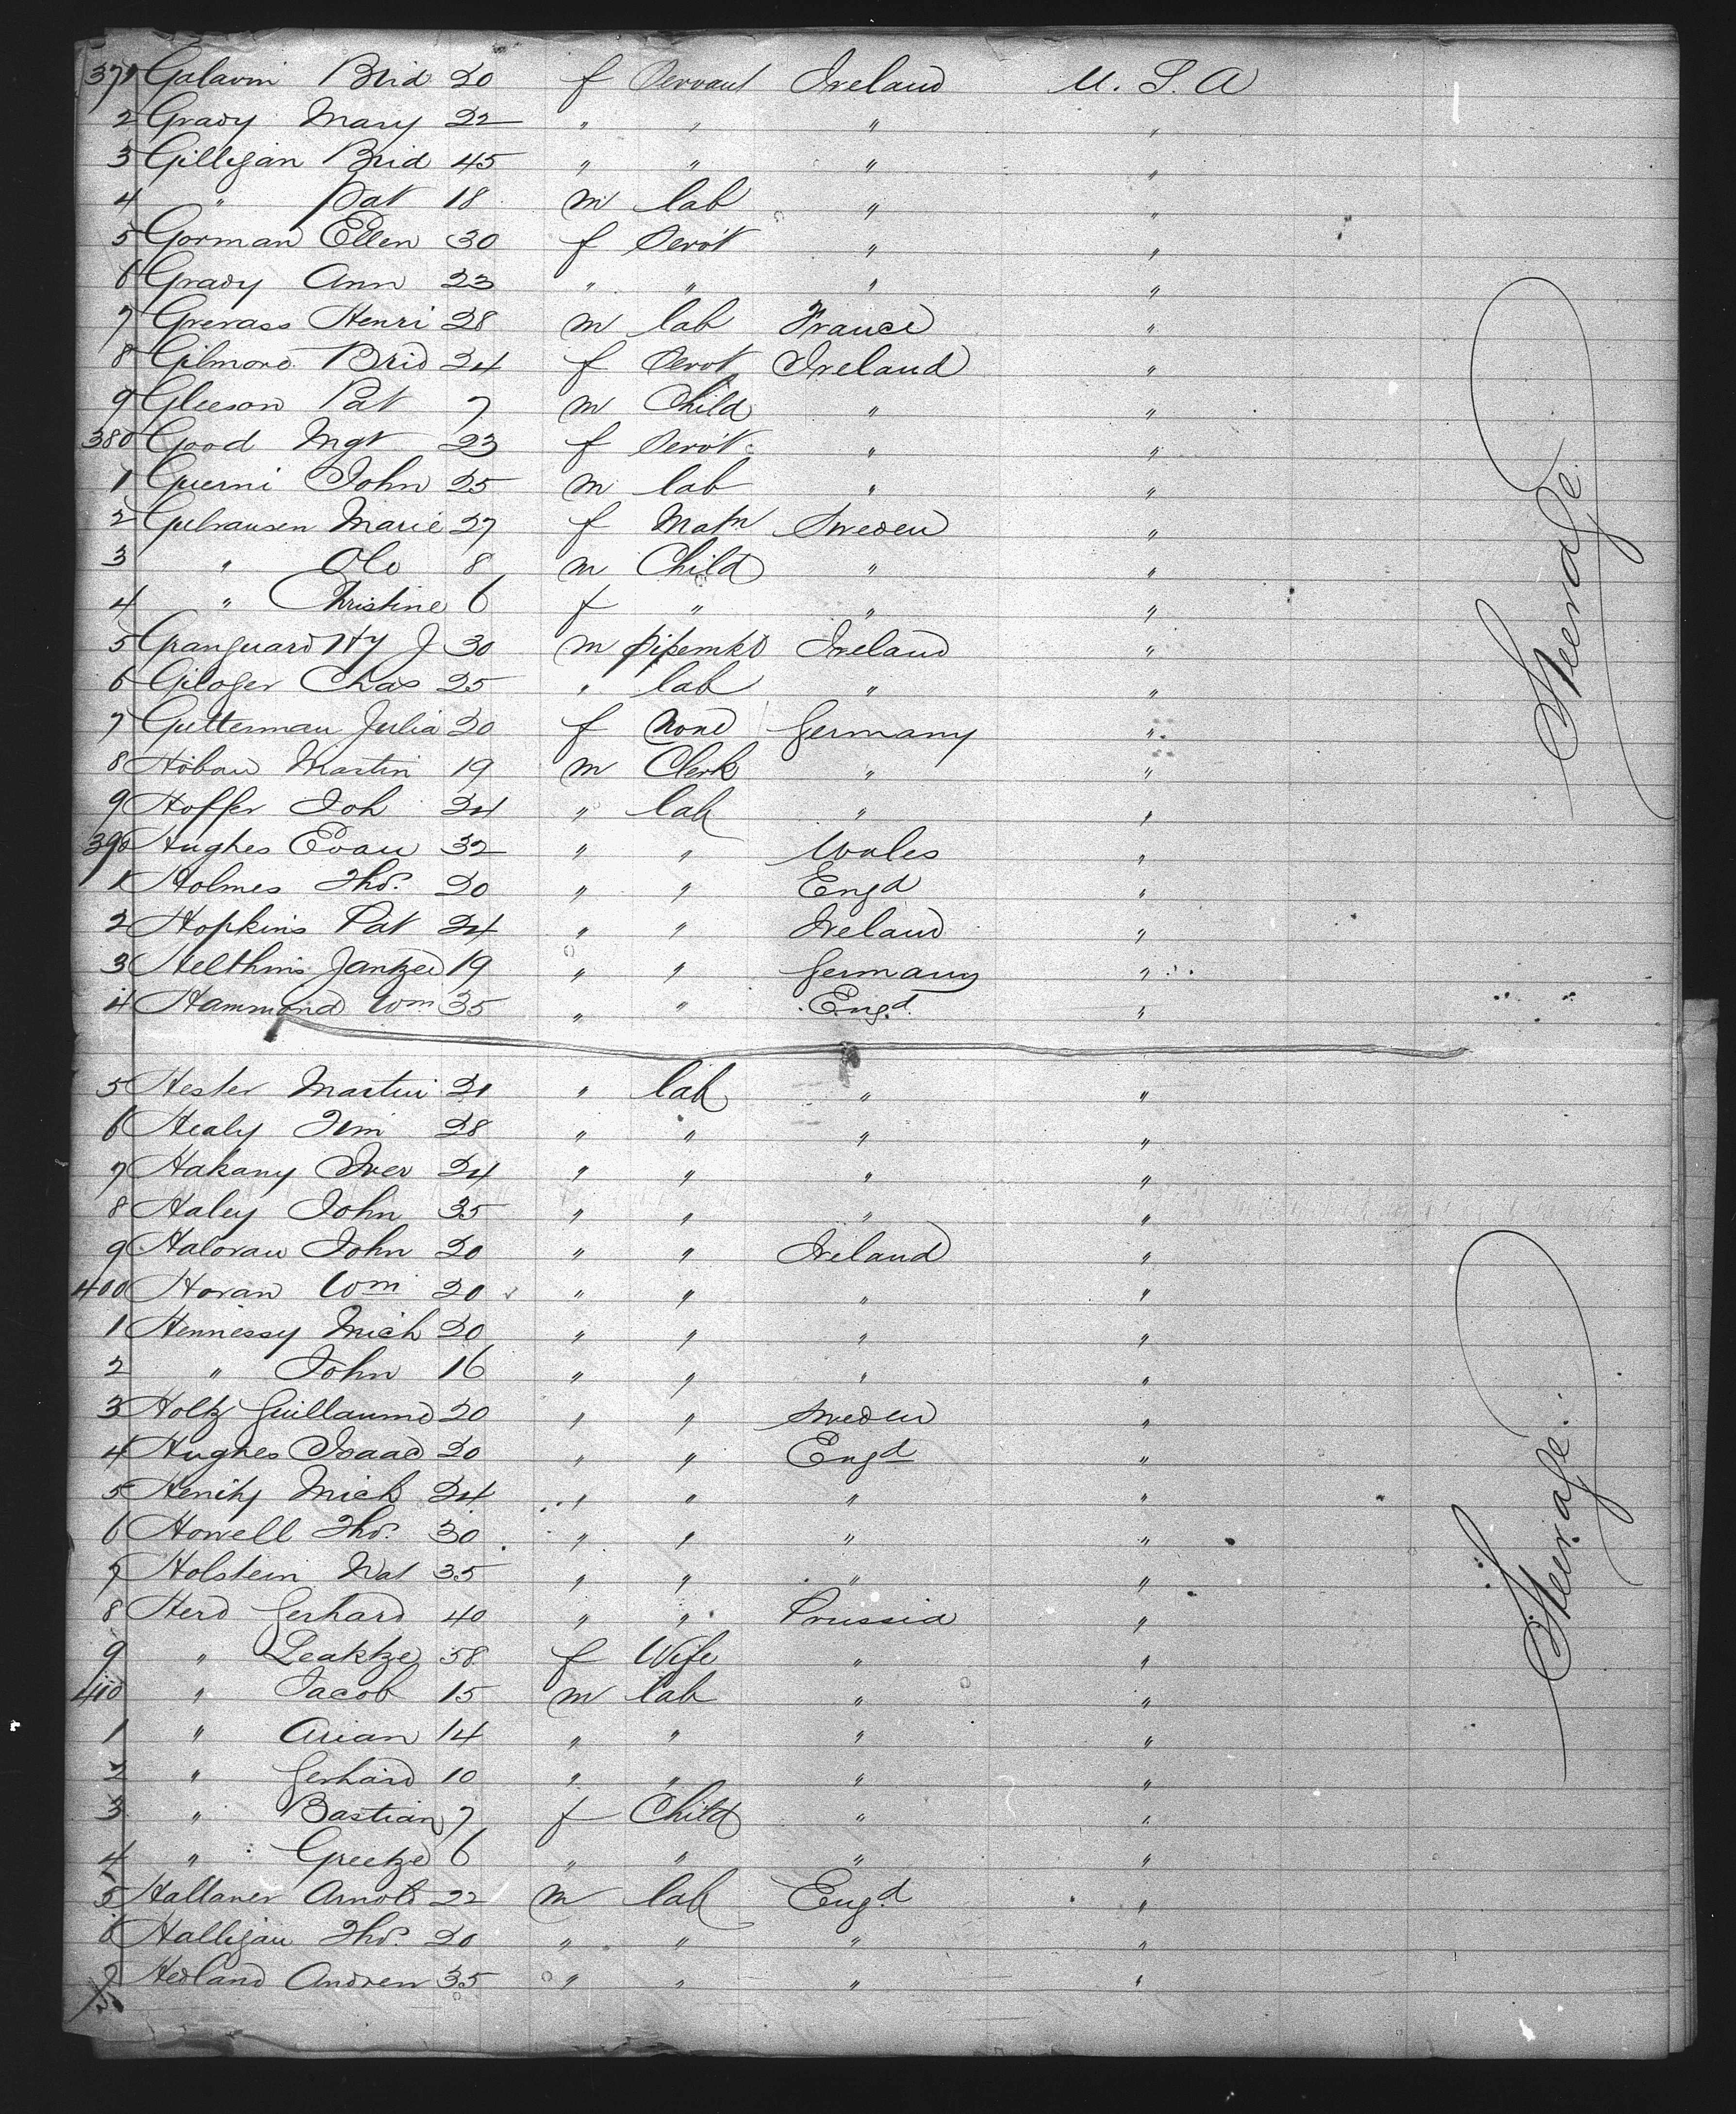 371 Galavin Brid 20 f Servant Ireland U. S. A
2 Grady Mary 22 " " " "
3 Gilligan Brid 45 " " " "
4 " Pat 18 m lab " "
5 Gorman Ellen 30 f Servt " "
6 Grady Ann 23 " " " "
7 Grevass Henri 28 m lab France "
8 Gilmore Brid 24 f Servt Ireland "
9 Gleeson Pat 7 m Child " "
380 Good Mgt 23 f Servt " "
1 Guerni John 25 m lab " "
2 Gulransen Marie 27 f Matn Sweden "
3 " Ole 8 m Child " "
4 " Christine 6 f " " "
5 Granguard Hy J 30 m pipemkr Ireland "
6 Giloger Chas 25 " lab " "
7 Gutterman Julia 20 f None Germany "
8 Hoban Martin 19 m Clerk " "
9 Hoffer Joh 24 " lab " "
390 Hughes Evan 32 " " Wales "
1 Holmes Thos. 20 " " Engd "
2 Hopkins Pat 24 " " Ireland "
3 Helthins Jantzed 19 " " Germany "
4 Hammond Wm 35 " " Engd "
5 Hester Martin 21 " lab " "
6 Healy Tim 28 " " " "
7 Hakany Iver 24 " " " "
8 Haley John 35 " " " "
9 Haloran John 20 " " Ireland "
400 Horan Wm 20 " " " "
1 Hennessy Mich 20 " " " "
2 " John 16 " " " "
3 Holtz Guillaume 20 " " Sweden "
4 Hughes Isaac 20 " " Engd "
5 Henihy Mick 24 " " " "
6 Howell Thos. 30 " " " "
7 Holstein Nat 35 " " " "
8 Herd Gerhard 40 " " Prussia "
9 " Peaktze 58 f Wife " "
410 " Jacob 15 m lab " "
1 " Arian 14 " " " "
2 " Gerhard 10 " " " "
3 " Bastian 7 f Child " "
4 " Greetze 6 " " " "
5 Hallaner Arnold 22 m lab Engd "
6 Halligan Thos. 20 " " " "
7 Hedland Andrew 35 " " " "
Steerage.
Steerage.